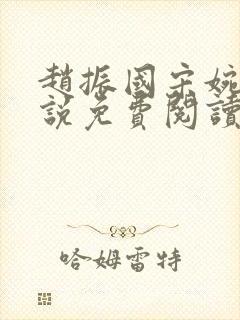 趙振國宋婉
說免費閱讀
哈姆雷特